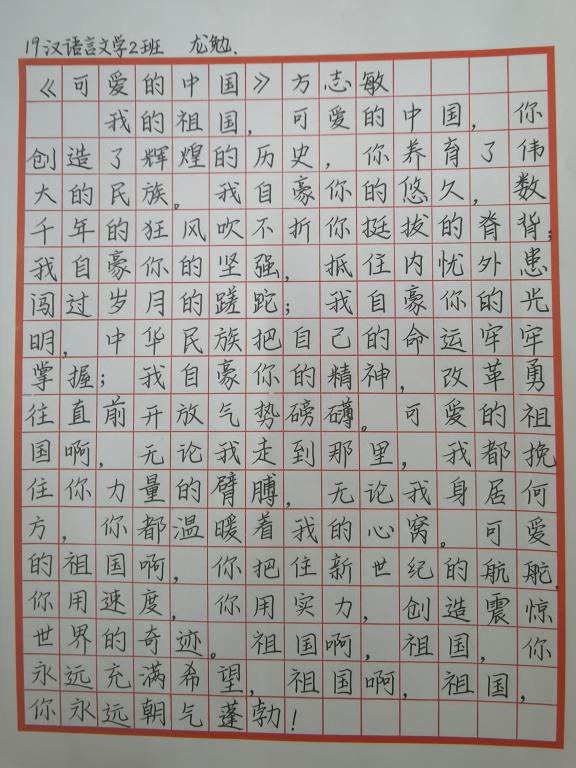 19汉语言文学2班 尤勉.
《可爱的中国》方志敏
我的祖国，可爱的中国，你
创造了辉煌的历史，你养育了伟
大的民族。我自豪你的悠久，数
千年的狂风吹不折你挺拔的脊背；
我自豪你的坚强，抵住内忧外患
闯过岁月的蹉跎；我自豪你的光
明，中华民族把自己的命运牢牢
掌握；我自豪你的精神，改革勇
往直前开放气势磅礴。可爱的祖
国啊，无论我走到那里，我都挽
住你力量的臂膊，无论我身居何
方，你都温暖着我的心窝。可爱
的祖国啊，你把住新世纪的航舵，
你用速度，你用实力，创造震惊
世界的奇迹。祖国啊，祖国，你
永远充满希望，祖国啊，祖国，
你永远朝气蓬勃！